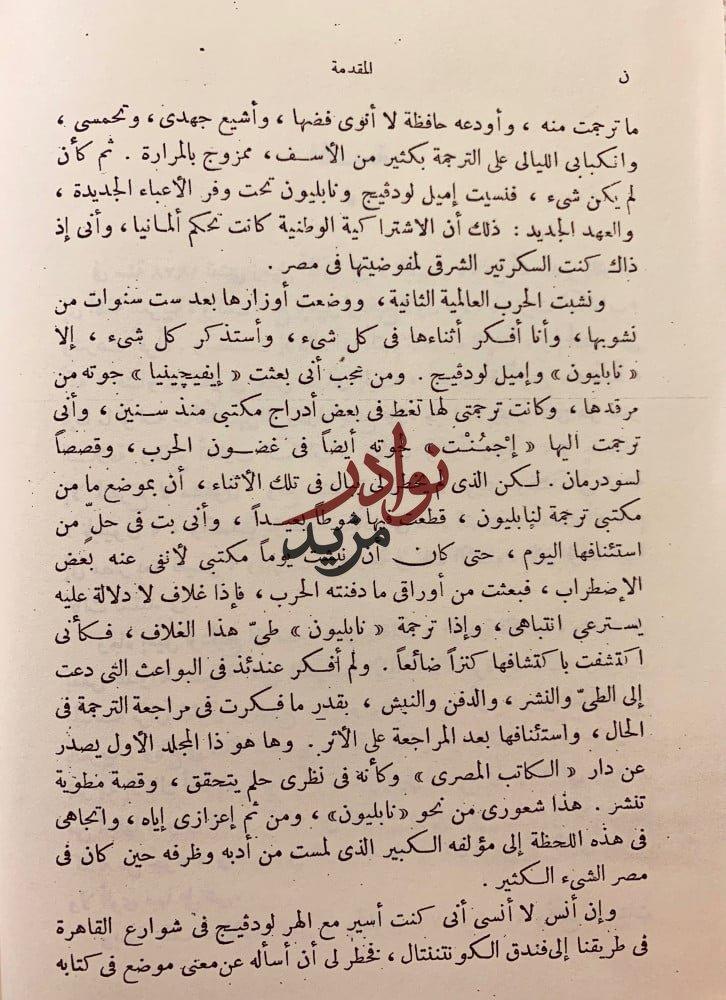 ن
المقدمة
ما ترجمت منه ، وأودعه حافظة لا أنوى فضها ، وأشيع جهدى ، وتحمسى ،
وانكبابى الليالى على الترجمة بكثير من الأسف ، ممزوج بالمرارة . ثم كأن
لم يكن شىء ، فنسيت إميل لودڤيج ونابليون تحت وقر الأعباء الجديدة ،
والعهد الجديد : ذلك أن الاشتراكية الوطنية كانت تحكم ألمانيا ، وأنى إذ
ذاك كنت السكرتير الشرقى لمفوضيتها فى مصر .
ونشبت الحرب العالمية الثانية ، ووضعت أوزارها بعد ست سنوات من
نشوبها ، وأنا أفكر أثناءها فى كل شىء ، وأستذكر كل شىء ، إلا
« نابليون » وإميل لودڤيج . ومن عجب أنى بعثت « إيفيچينيا » جوته من
مرقدها ، وكانت ترجمتى لها تغط فى بعض أدراج مكتبى منذ سنين ، وأنى
ترجمت اليها « إجْمُنْت » لجوته أيضاً فى غضون الحرب ، وقصصاً
لسودرمان . لكن الذى لم يخطر لى ببال فى تلك الأثناء ، أن بموضع ما من
مكتبى ترجمة لنابليون ، قطعت فيها شوطاً بعيداً ، وأنى بت فى حلٍّ من
استئنافها اليوم ، حتى كان أن نبشت يوماً مكتبى لأنفى عنه بعض
الإضطراب ، فبعثت من أوراقى ما دفنته الحرب ، فإذا غلاف لا دلالة عليه
يسترعي انتباهى ، وإذا ترجمة « نابليون » طىّ هذا الغلاف ، فكأنى
اكتشفت باكتشافها كنزاً ضائعاً . ولم أفكر عندئذ فى البواعث التى دعت
إلى الطىّ والنشر ، والدفن والنبش ، بقدر ما فكرت فى مراجعة الترجمة فى
الحال ، واستئنافها بعد المراجعة على الأثر . وها هو ذا المجلد الأول يصدر
عن دار « الكاتب المصرى » وكأنه فى نظرى حلم يتحقق ، وقصة مطوية
تنشر . هذا شعورى من نحو «نابليون» ، ومن ثم إعزازى إياه ، واتجاهى
فى هذه اللحظة إلى مؤلفه الكبير الذى لمست من أدبه وظرفه حين كان فى
مصر الشىء الكثير .
وإن أنس لا أنسى أنى كنت أسير مع الهر لودڤيج فى شوارع القاهرة
فى طريقنا إلى فندق الكونتننتال ، فخطر لى أن أسأله عن معنى موضع فى كتابه
نوادر
مزيد